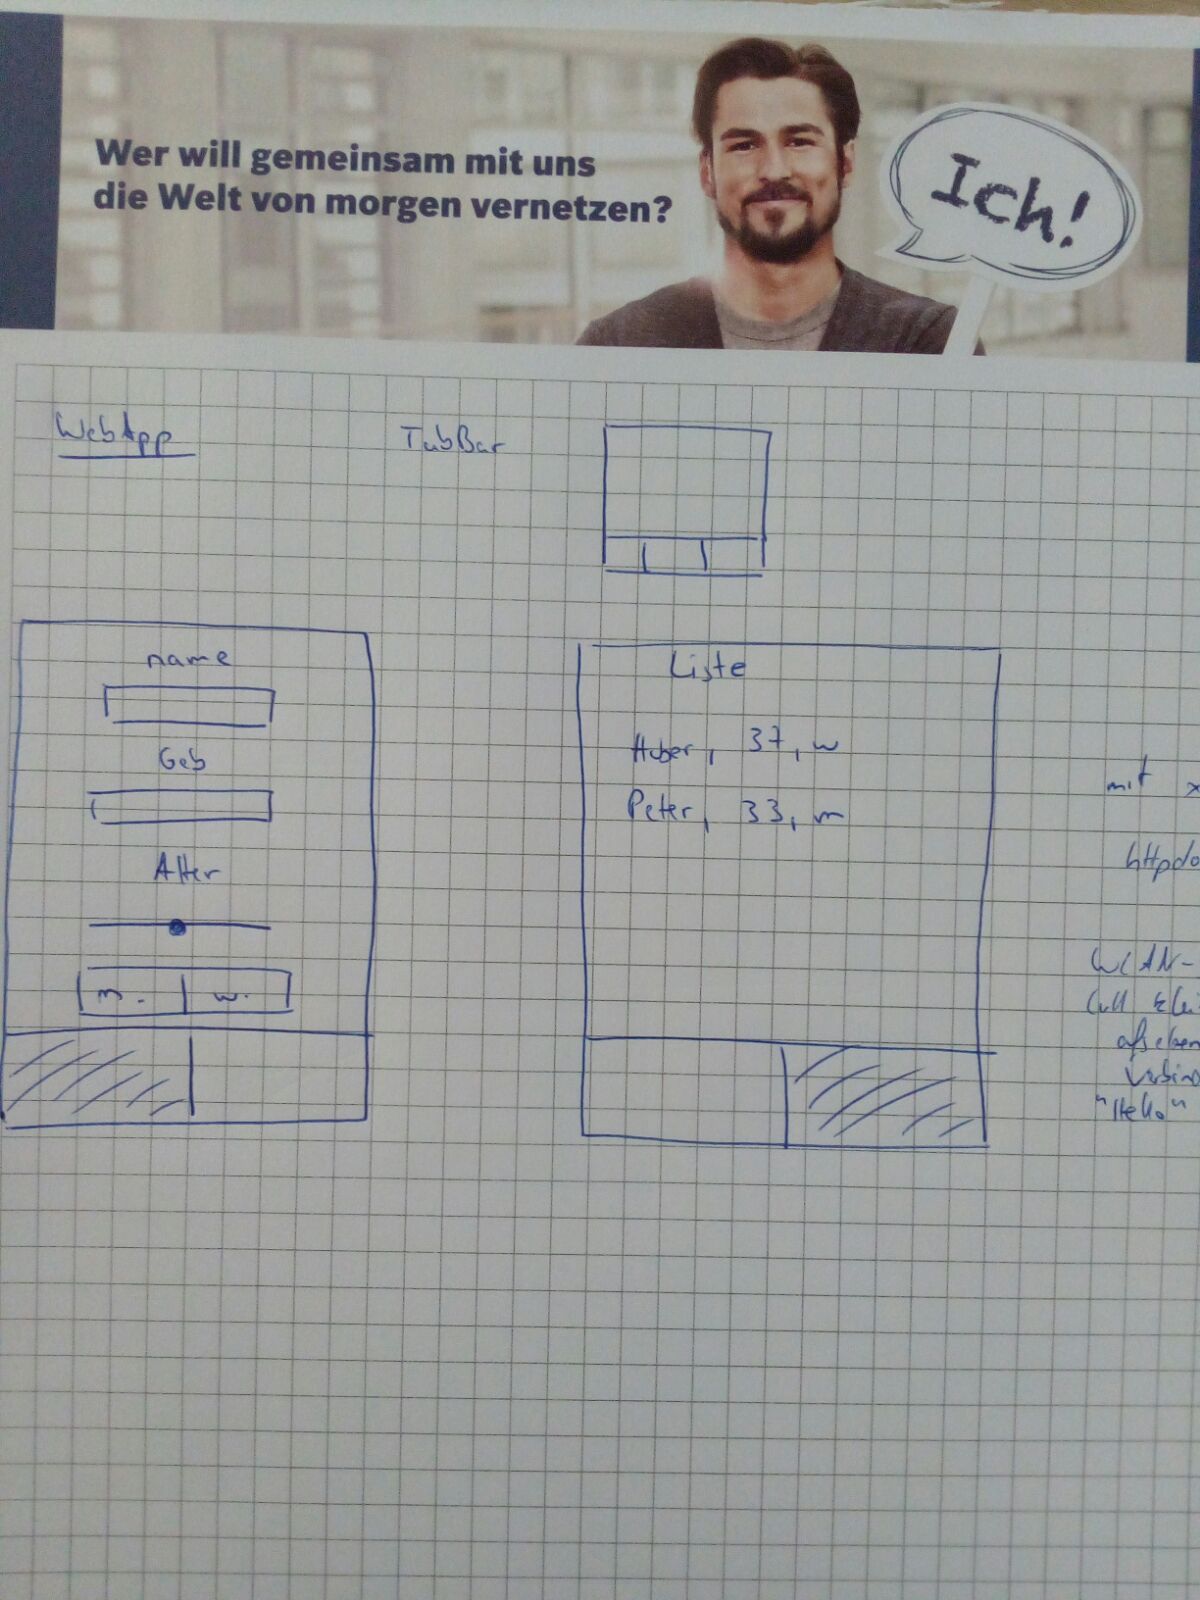 Wer will gemeinsam mit uns
die Welt von morgen vernetzen?
Ich!
WebApp
TabBar
name
Geb
Alter
m. w.
Liste
Huber, 37, w
Peter, 33, m
mit x
httpdo
WLAN-
"Hello"